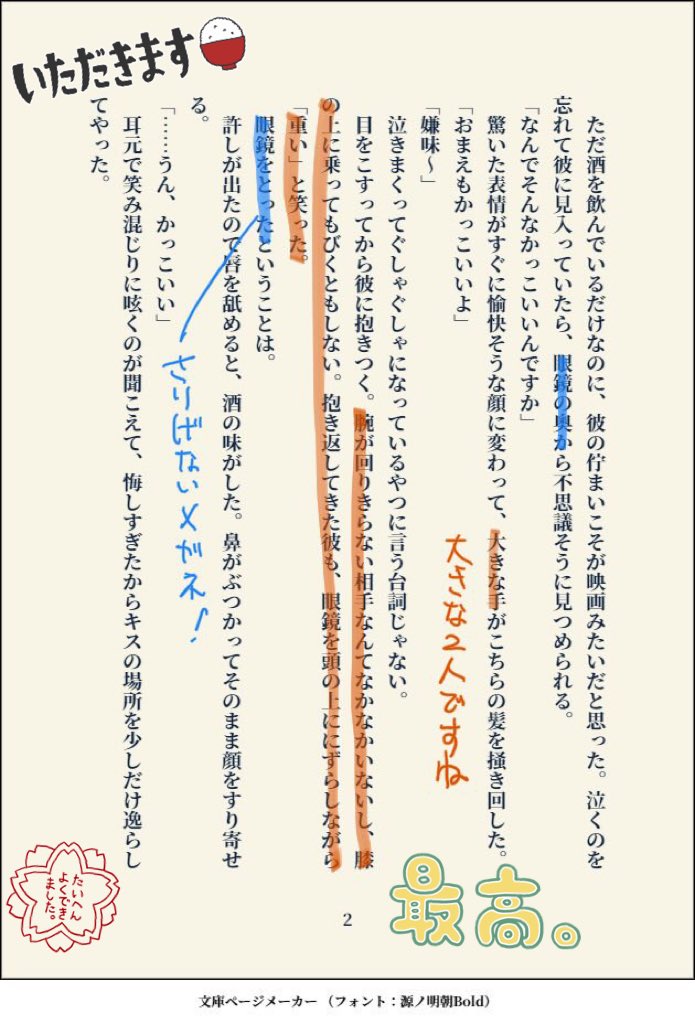 いただきます
ただ酒を飲んでいるだけなのに、彼の佇まいこそが映画みたいだと思った。泣くのを
忘れて彼に見入っていたら、眼鏡の奥から不思議そうに見つめられる。
「なんでそんなかっこいいんですか」
驚いた表情がすぐに愉快そうな顔に変わって、大きな手がこちらの髪を掻き回した。
「おまえもかっこいいよ」
「嫌味～」
泣きまくってぐしゃぐしゃになっているやつに言う台詞じゃない。
目をこすってから彼に抱きつく。腕が回りきらない相手なんてなかなかいないし、膝
の上に乗ってもびくともしない。抱き返してきた彼も、眼鏡を頭の上ににずらしながら
「重い」と笑った。
眼鏡をとったということは。
許しが出たので唇を舐めると、酒の味がした。鼻がぶつかってそのまま顔をすり寄せ
る。
「……うん、かっこいい」
耳元で笑み混じりに呟くのが聞こえて、悔しすぎたからキスの場所を少しだけ逸らし
てやった。
大きな2人ですね
さりげないメガネ!
たいへん
よくでき
ました。
2
最高。
文庫ページメーカー（フォント：源ノ明朝Bold）